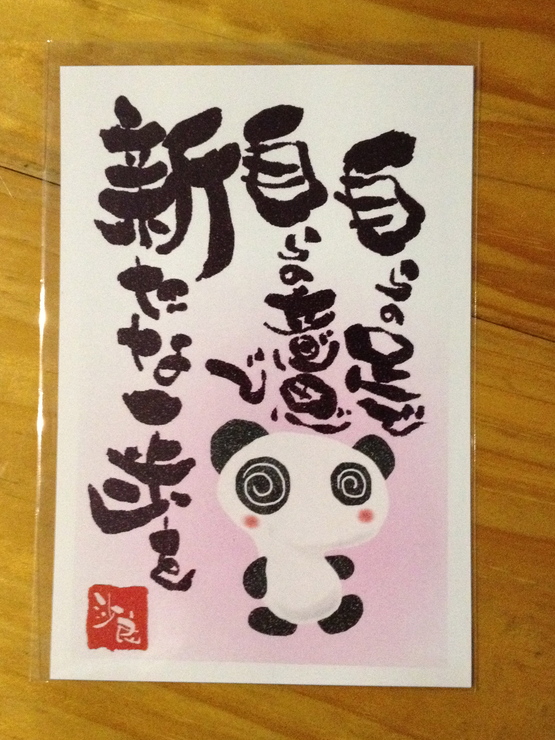 自らの足で
自らの意思で
新たな一歩を
沙良